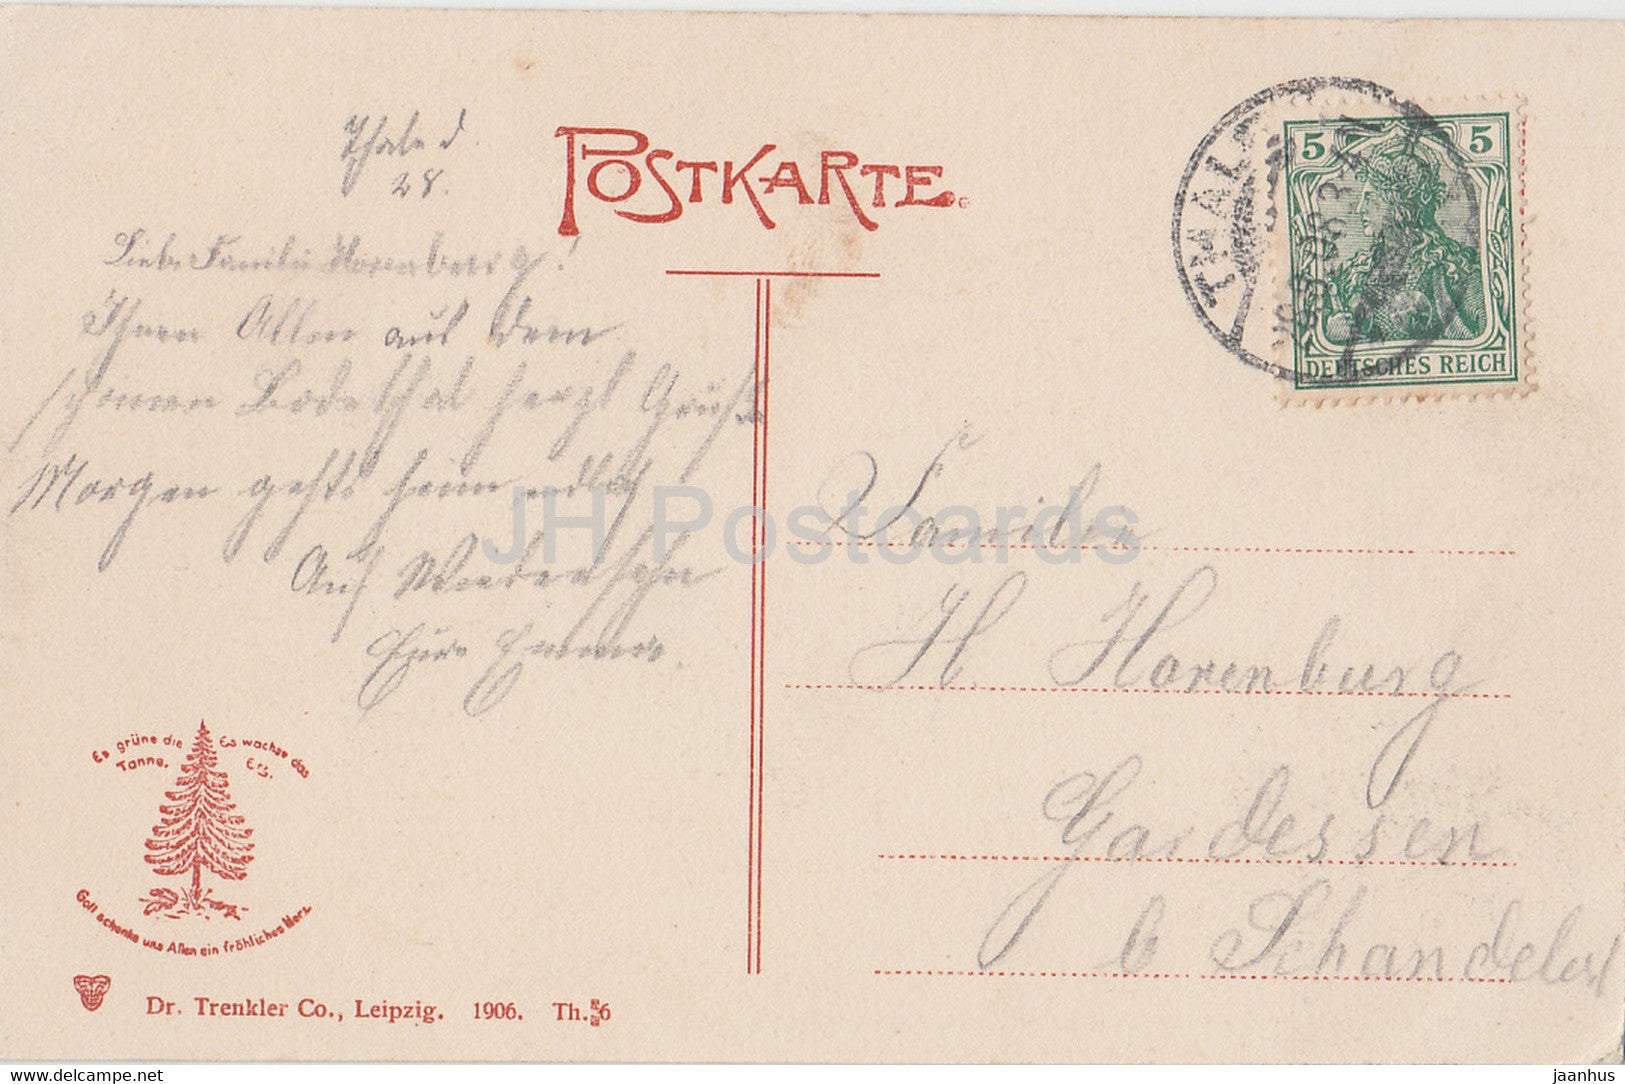 Thale d.
28.
POSTKARTE.
Liebe Familie Horenburg!
Ihnen Allen aus dem
schönen Bodethal herzl Grüße
Morgen gehts heim endlich
Auf Wiedersehn
Eure Emma.
THALE
5 5
DEUTSCHES REICH
Familie
H. Horenburg
Gardessen
b Schandelah
JH Postcards
Es grüne die Tanne.
Es wachse das Erz.
Gott schenke uns Allen ein fröhliches Herz.
Dr. Trenkler Co., Leipzig. 1906. Th. 6
delcampe.net
jaanhus